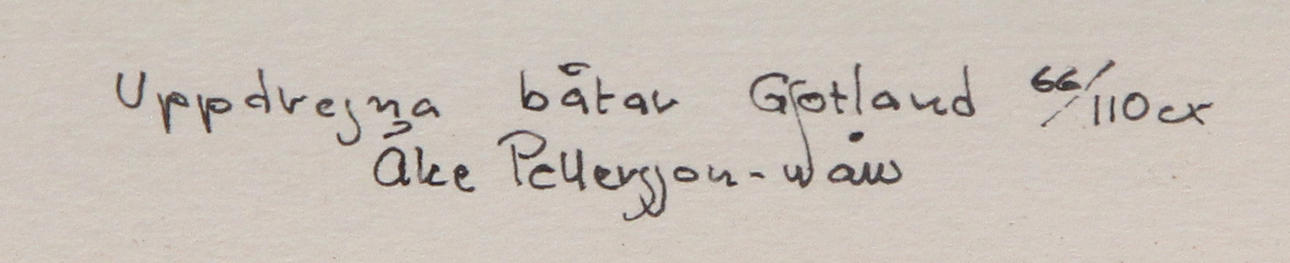 Uppdregna båtar Gotland 66/110 ex
Åke Pettersson-waw